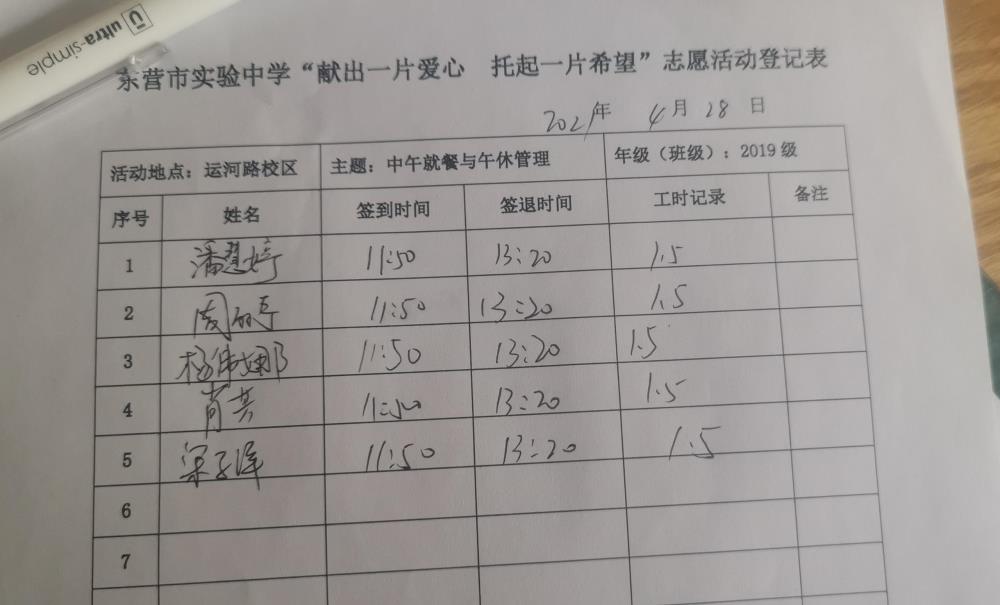 ultra-simple
东营市实验中学“献出一片爱心 托起一片希望”志愿活动登记表
2021年 4月 28日
活动地点：运河路校区 主题：中午就餐与午休管理 年级（班级）：2019级
序号 姓名 签到时间 签退时间 工时记录 备注
1 潘慧婷 11:50 13:20 1.5
2 周 11:50 13:20 1.5
3 杨伟娜 11:50 13:20 1.5
4 肖 11:50 13:20 1.5
5 梁子 11:50 13:20 1.5
6
7